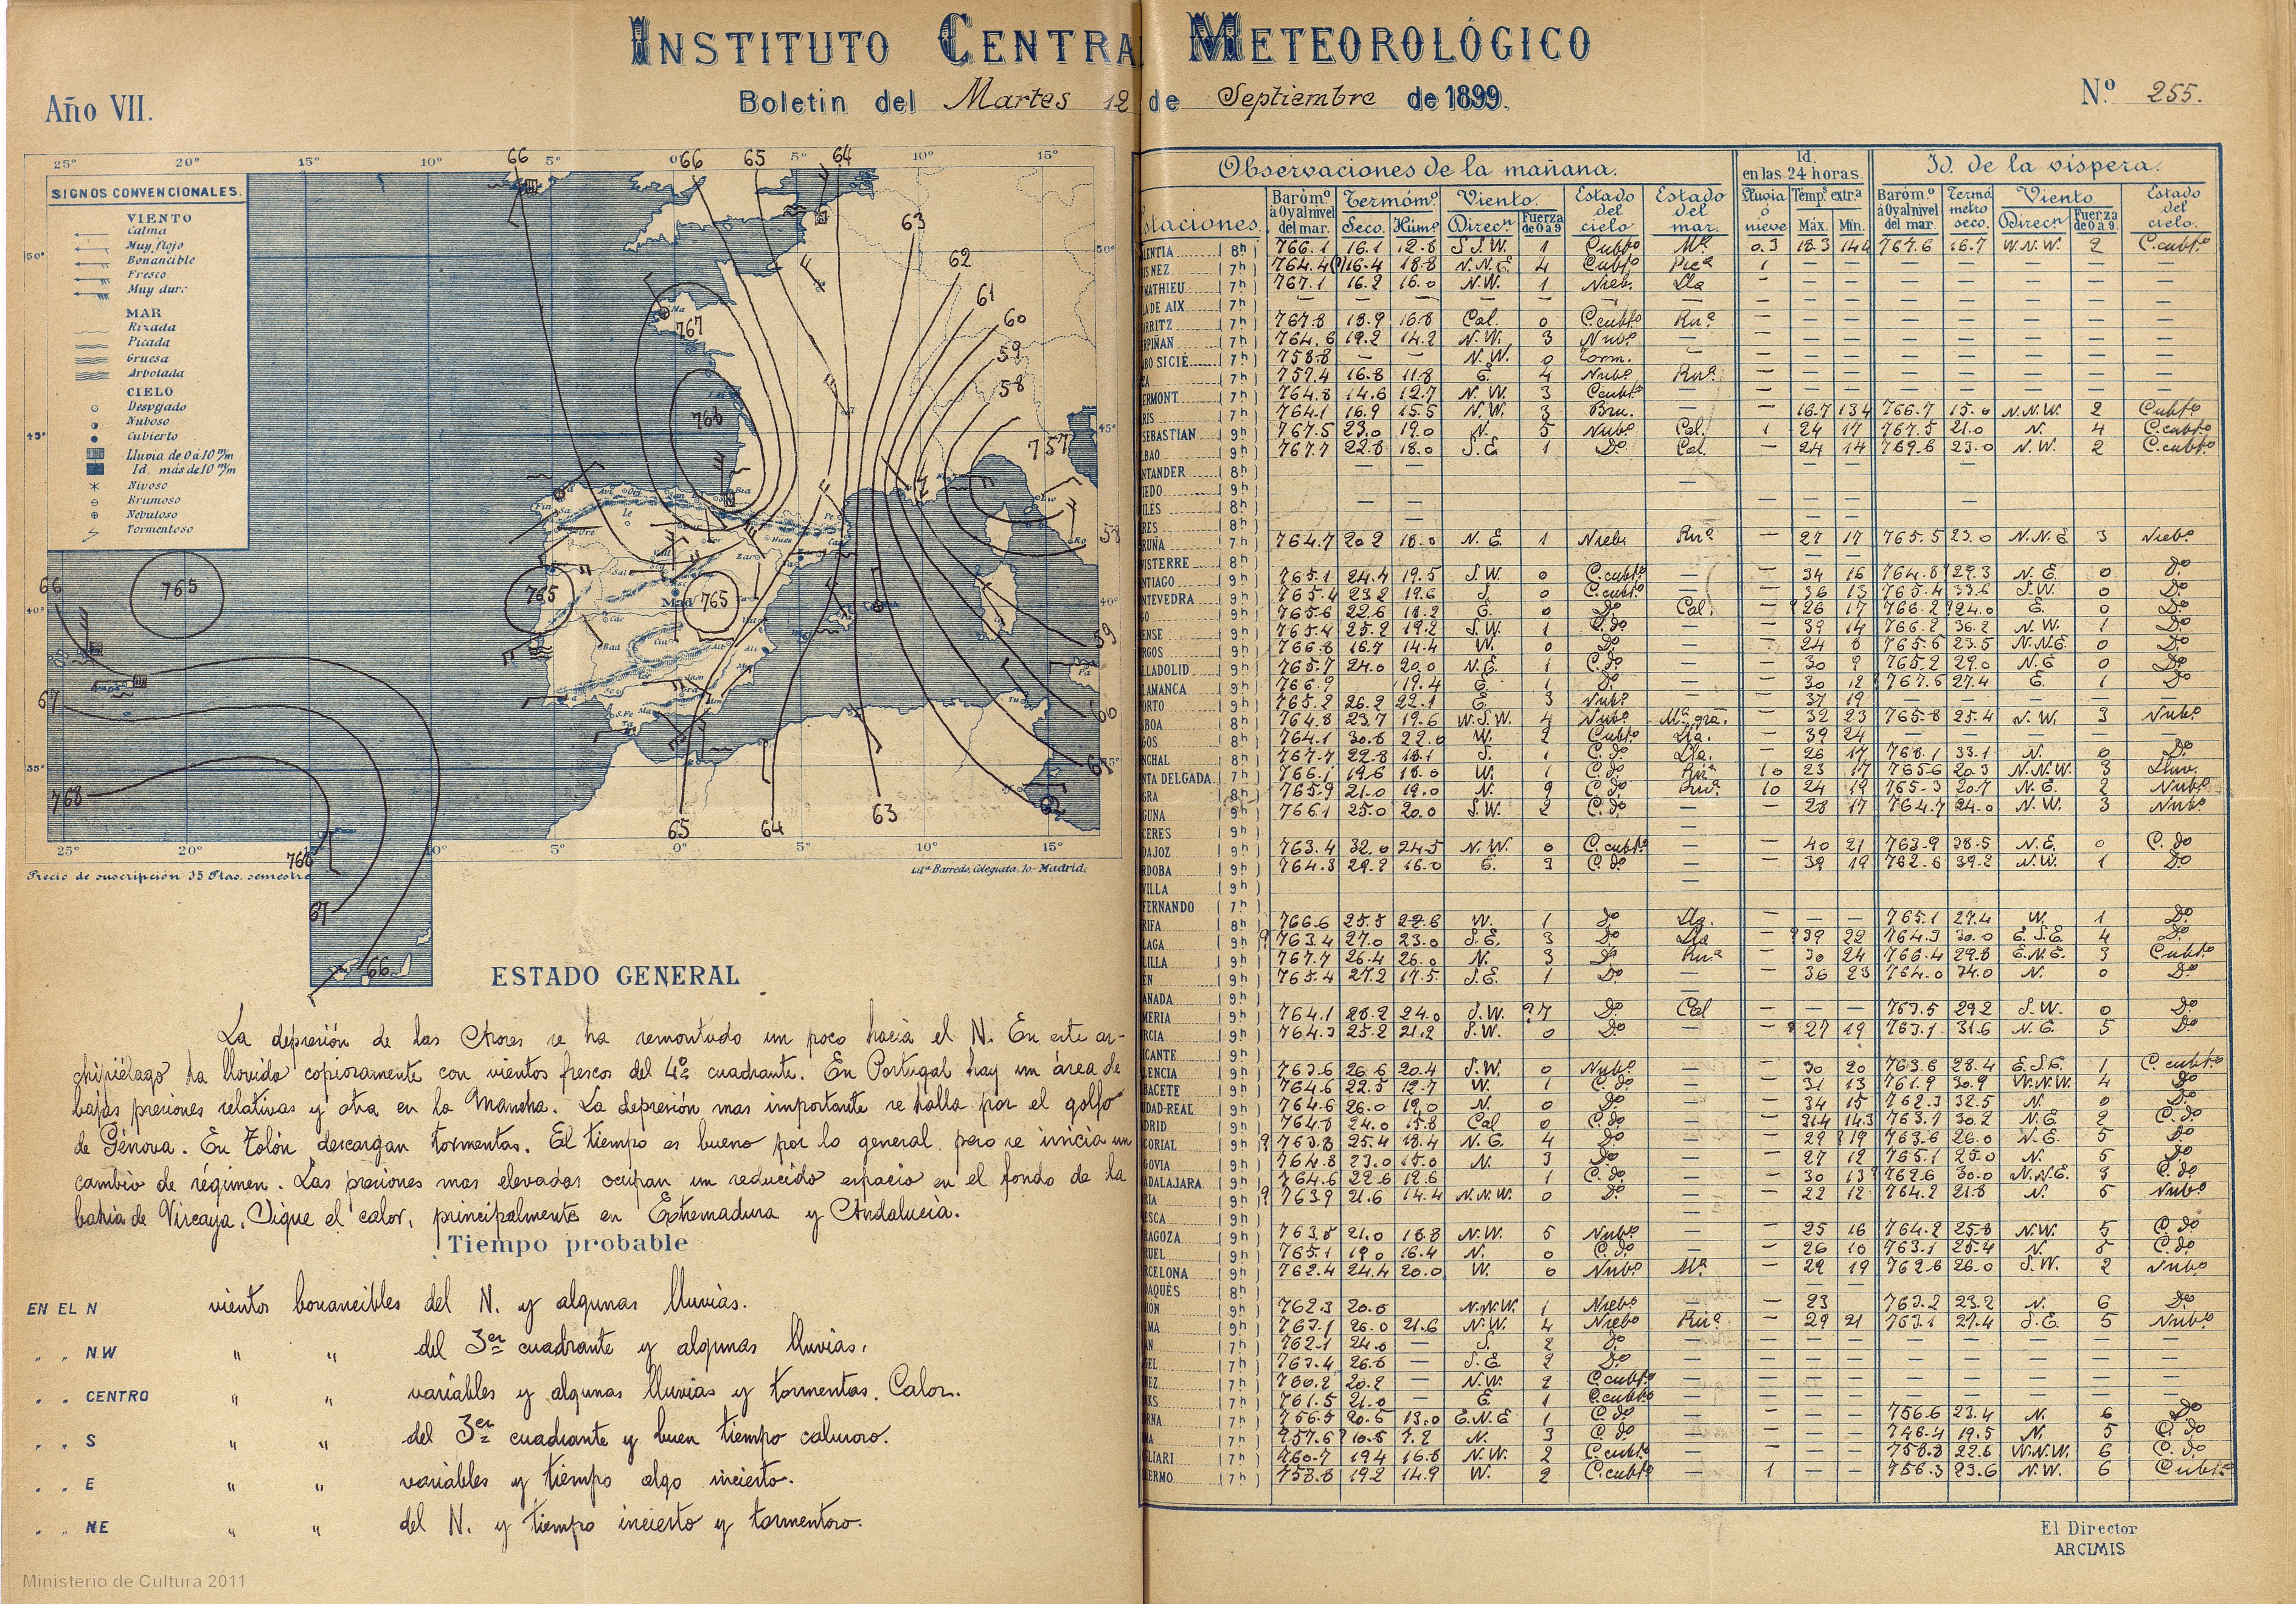 INSTITUTO CENTRAL METEOROLÓGICO
Año VII.
Boletin del Martes 12 de Septiembre de 1899.
N.º 255.
SIGNOS CONVENCIONALES.
VIENTO
Calma
Muy flojo
Bonancible
Fresco
Muy duro
MAR
Rizada
Picada
Gruesa
Arbolada
CIELO
Despejado
Nuboso
Cubierto
Lluvia de 0 á 10 m/m
Id. más de 10 m/m
Nivoso
Brumoso
Nebuloso
Tormentoso
25° 20° 15° 10° 5° 0° 5° 10° 15°
66 66 65 64
63
62
61
60
59
58
767
768
757
765
765
765
66
67
768
65 64 63
67
66
Precio de suscripción 15 Ptas. semestre
Lit.ª Barredo, Colegiata, 10- Madrid.
ESTADO GENERAL
La depresión de las Azores se ha remontado un poco hacia el N. En este ar-
chipiélago ha llovido copiosamente con vientos frescos del 4º cuadrante. En Portugal hay un área de
bajas presiones relativas y otra en la Mancha. La depresión mas importante se halla por el golfo
de Génova. En Tolón descargan tormentas. El tiempo es bueno por lo general, pero se inicia un
cambio de régimen. Las presiones mas elevadas ocupan un reducido espacio en el fondo de la
bahia de Vizcaya. Sigue el calor, principalmente en Extremadura y Andalucia.
Tiempo probable
EN EL N vientos bonancibles del N. y algunas lluvias.
" " NW " " del 3er cuadrante y algunas lluvias.
" " CENTRO " " variables y algunas lluvias y tormentas. Calor.
" " S " " del 3er cuadrante y buen tiempo caluroso.
" " E " " variables y tiempo algo incierto.
" " NE " " del N. y tiempo incierto y tormentoso.
Observaciones de la mañana.
Id. en las 24 horas.
Id. de la víspera.
taciones. Baróm.º á 0 y al nivel del mar. Termóm.º Seco. Húm.º Viento. Direc.n Fuerza de 0 á 9. Estado del cielo Estado del mar. Lluvia ó nieve Temp.s extr.s Máx. Mín. Baróm.º á 0 y al nivel del mar. Termómetro seco. Viento Direc.n Fuerza de 0 á 9. Estado del cielo.
LENTIA 8h 766.1 16.1 12.8 S.S.W. 1 Cubto Ma 0.3 18.3 144 767.6 16.7 W.N.W. 2 C.cubto
ISNEZ 7h 764.4 16.4 18.8 N.N.E. 4 Cubto Pica 1
MATHIEU 7h 767.1 16.2 16.0 N.W. 1 Nieb. Lla
LA DE AIX 7h
ARRITZ 7h 767.8 18.9 16.8 Cal. 0 C.cubto Riza
RPIÑAN 7h 764.6 19.2 14.2 N.W. 3 Nubo
BO SICIÉ 7h 758.8 N.W. 0 Torm.
ZA 7h 759.4 16.8 11.8 E. 4 Nubo Riza
ERMONT 7h 764.8 14.6 12.7 N.W. 3 C.cubto
RIS 7h 764.1 16.9 15.5 N.W. 3 Bru. 16.7 134 766.7 15.0 N.N.W. 2 Cubto
SEBASTIAN 9h 767.5 23.0 19.0 N. 5 Nubo Cal. 1 24 17 767.5 21.0 N. 4 C.cubto
LBAO 9h 767.7 22.8 18.0 S.E. 1 Do Cal. 24 14 769.6 23.0 N.W. 2 C.cubto
NTANDER 8h
IEDO 9h
ILÉS 8h
RES 8h
RUÑA 7h 764.7 20.2 18.0 N.E. 1 Nieb. Riza 27 17 765.5 23.0 N.N.E. 3 Niebo
NISTERRE 8h
NTIAGO 9h 765.1 24.4 19.5 S.W. 0 C.cubto 34 16 764.8 29.3 N.E. 0 Do
NTEVEDRA 9h 765.4 23.2 19.6 S. 0 C.cubto 36 13 765.4 33.6 S.W. 0 Do
GO 9h 765.6 22.6 18.2 E. 0 Do Cal. 26 17 766.2 24.0 E. 0 Do
ENSE 9h 765.4 25.2 19.2 S.W. 1 C.do 39 14 766.2 36.2 N.W. 1 Do
RGOS 9h 766.8 16.7 14.4 W. 0 Do 24 8 765.6 23.5 N.N.E. 0 Do
LLADOLID 9h 765.7 24.0 20.0 N.E. 1 C.do 30 9 765.2 29.0 N.E 0 Do
LAMANCA 9h 766.9 19.4 E. 1 Do 30 12 767.6 27.4 E. 1 Do
ORTO 9h 765.2 26.2 22.1 E. 3 Nubo 37 19
SBOA 8h 764.8 23.7 19.6 W.S.W. 4 Nubo 32 23 765.8 25.4 N.W. 3 Nubo
GOS 8h 764.1 30.8 22.0 W. 2 Cubto Lla. 39 24
NCHAL 8h 767.7 22.8 18.1 S. 1 C.do Lla. 26 17 768.1 33.1 N. 0 Do
NTA DELGADA 7h 766.1 19.6 18.0 W. 1 C.do Riza 10 23 17 765.6 20.3 N.N.W. 3 Lluv.
GRA 8h 765.9 21.0 19.0 N. C.do Riza 10 24 19 765.3 20.7 N.E. 2 Nubo
GUNA 9h 766.1 25.0 20.0 S.W. 2 C.do 28 17 764.7 24.0 N.W. 3 Nubo
CERES 9h
DAJOZ 9h 763.4 32.0 24.5 N.W. 0 C.cubto 40 21 763.9 38.5 N.E. 0 C.do
RDOBA 9h 764.3 29.2 16.0 E. 3 C.do 39 19 762.6 39.2 N.W. 1 Do
VILLA 9h
FERNANDO 7h
RIFA 8h 766.6 25.5 22.6 W. 1 Do Lla. 765.1 27.4 W. 1 Do
LAGA 9h 763.4 27.0 23.0 S.E. 3 Do Lla 39 22 764.3 30.0 E.S.E. 4 Do
LILLA 9h 767.7 26.4 26.0 N. 3 Do Riza 30 24 766.4 29.8 E.N.E. 3 Cubto
EN 9h 765.4 27.2 17.5 S.E. 1 Do 36 23 764.0 34.0 N. 0 Do
ANADA 9h
MERIA 9h 764.1 28.2 24.0 S.W. 7 Do Cal 763.5 29.2 S.W. 0 Do
RCIA 9h 764.3 25.2 21.2 S.W. 0 Do 27 19 763.1 31.6 N.E. 5 Do
ICANTE 9h
LENCIA 9h 763.6 26.6 20.4 S.W. 0 Nubo 30 20 763.6 28.4 E.S.E. 1 C.cubto
BACETE 9h 764.6 22.5 12.7 W. 1 C.do 31 13 761.9 30.9 W.N.W. 4 Do
UDAD-REAL 9h 764.6 26.0 19.0 N. 0 Do 34 15 762.3 32.5 N. 0 Do
DRID 9h 764.8 24.0 15.8 Cal 0 C.do 31.4 14.3 763.7 30.2 N.E. 2 C.do
CORIAL 9h 763.8 25.4 18.4 N.E. 4 Do 29 19 763.6 26.0 N.E. 5 Do
GOVIA 9h 764.8 23.0 15.0 N. 3 Do 27 12 765.1 25.0 N. 5 Do
ADALAJARA 9h 764.6 22.6 12.6 1 C.do 30 13 762.6 30.0 N.N.E. 3 C.do
RIA 9h 763.9 21.6 14.4 N.N.W. 0 Do 22 12 764.2 21.8 N. 5 Nubo
ESCA 9h
RAGOZA 9h 763.8 21.0 18.8 N.W. 5 Nubo 25 16 764.2 25.8 N.W. 5 C.do
RUEL 9h 765.1 19.0 16.4 N. 0 C.do 26 10 763.1 25.4 N. 5 C.do
RCELONA 9h 762.4 24.4 20.0 W. 0 Nubo Ma 29 19 762.6 26.0 S.W. 2 Nubo
DAQUÉS 8h
HON 9h 762.3 20.0 N.N.W. 1 Niebo 23 763.2 23.2 N. 6 Do
LMA 9h 763.1 26.0 21.6 N.W. 4 Niebo Riza 29 21 763.1 27.4 S.E. 5 Nubo
AN 7h 762.1 24.0 S. 2 Do
GEL 7h 763.4 26.6 S.E. 2 Do
NEZ 7h 760.2 20.2 N.W. 2 C.cubto
AKS 7h 761.5 21.0 E. 1 C.cubto
ORNA 7h 756.5 20.6 13.0 E.N.E 1 C.do 756.6 23.4 N. 6 Do
MA 7h 757.6 10.8 7.2 N. 3 C.do 748.4 19.5 N. 5 C.do
GLIARI 7h 760.7 19.4 16.8 N.W. 2 C.cubto 758.8 22.6 W.N.W. 6 C.do
LERMO 7h 758.8 19.2 14.9 W. 2 C.cubto 1 756.3 23.6 N.W. 6 Cubto
El Director
ARCIMIS
Ministerio de Cultura 2011